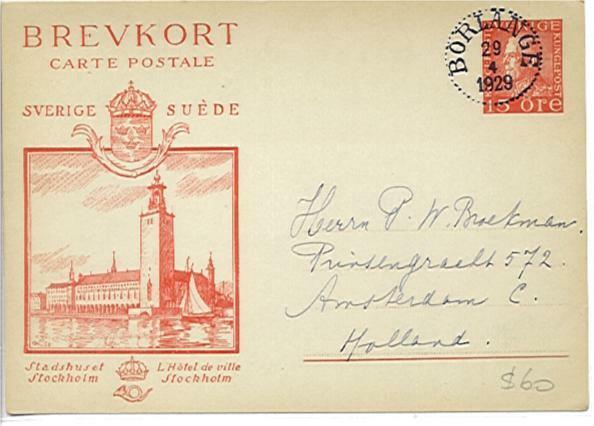 BREVKORT
CARTE POSTALE
SVERIGE SUÈDE
BORLÄNGE
29
4
1929
KUNGL POST
15 ÖRE
Herrn P. W. Broekman.
Prinsengracht 572.
Amsterdam C.
Holland.
Stadshuset L'Hôtel de ville
Stockholm Stockholm
$60